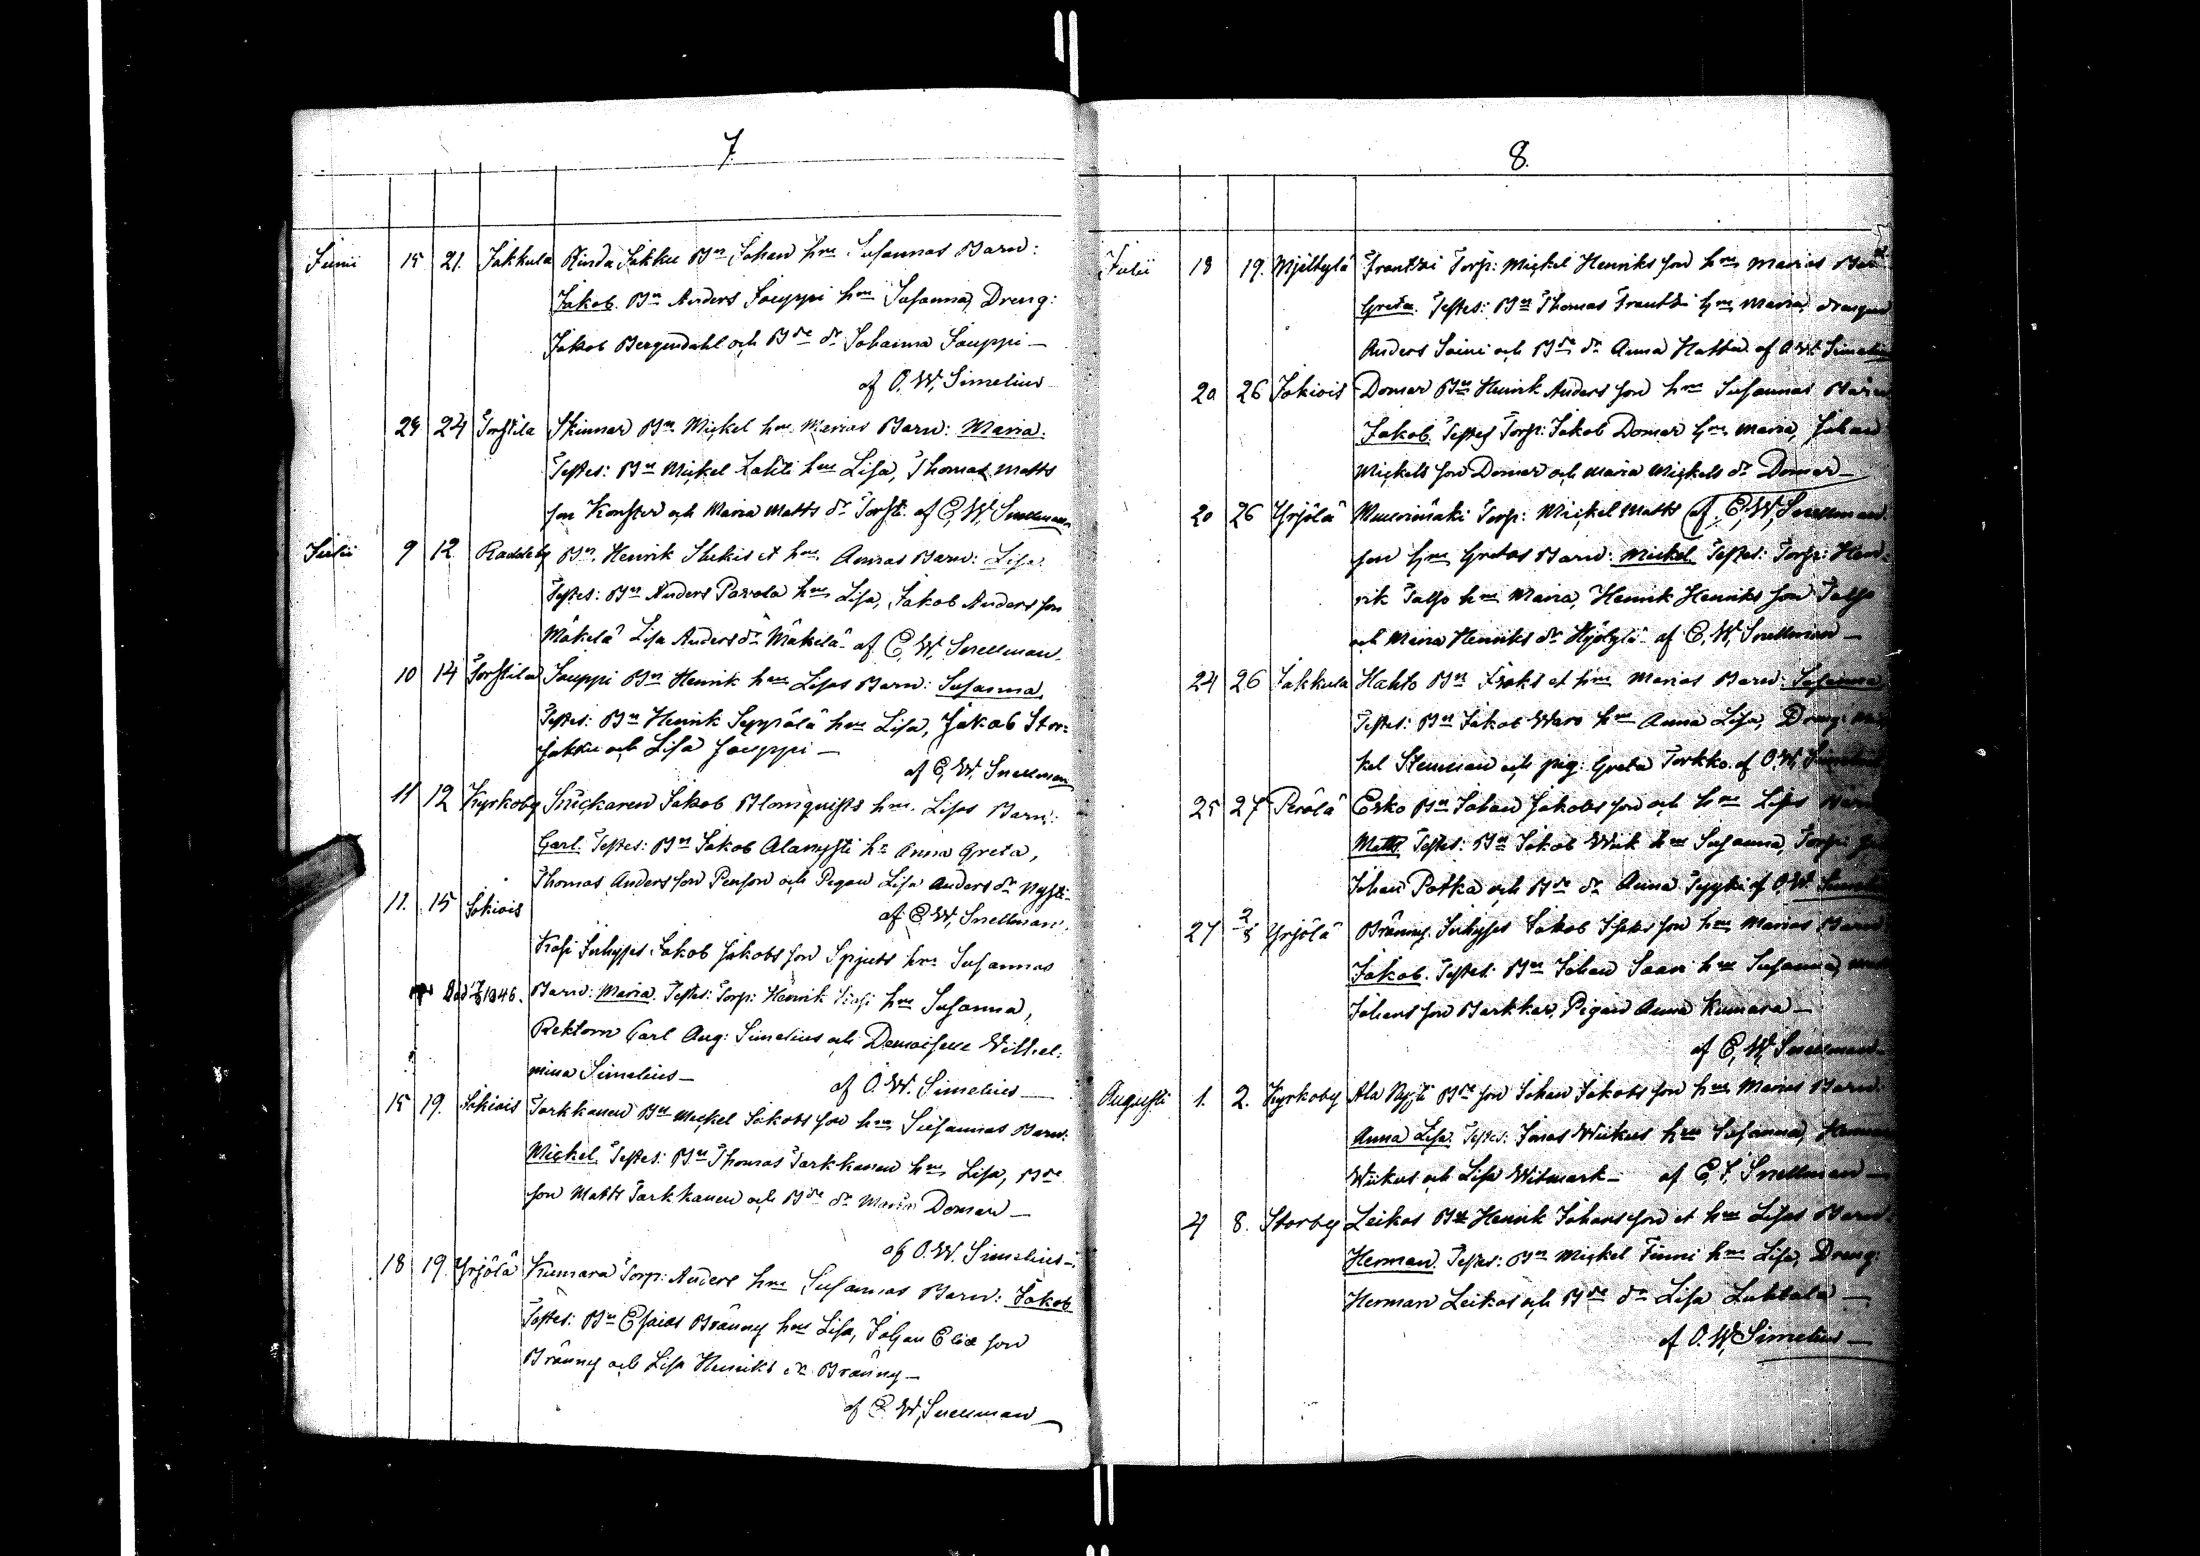 7.
Junii 15 21. Jakkula Rinda Jakku Bn Johan hru Susannas Barn:
Jakob. Bn Anders Jouppi hru Susanna, Dreng:
Jakob Bergendahl och Bde dr Johanna Jouppi —
af O. W. Simelius
24 Torstila Skinnar Bn Mickel hru Marias Barn: Maria.
Testes: Bn Mickel Lahti hru Lisa, Thomas Matts
son Konster och Maria Matts dr Torsti af E. W. Snellman
Julii 9 12 Raddeby Bn Henrik et hru Annas Barn: Lisa.
Testes: Bn Anders Pavola hru Lisa, Jakob Anders son
Mäkelä Lisa Anders dr Mäkelä af E. W. Snellman
10 14 Torstila Jouppi Bn Henrik hru Lisas Barn: Susanna.
Testes: Bn Henrik Seppälä hru Lisa, Jakob Stor=
jakku och Lisa Jouppi —
af E. W. Snellman
11 12 Kyrkoby Snickaren Jakob Blomquists hru Lisas Barn:
Carl. Testes: Bn Jakob Alanysti hr Anna Greta,
Thomas Anders son Penson och Pigan Lisa Anders dr Nysti
11. 15 Jokiois af E. W. Snellman.
Jakob Jakobs son Spjuts hru Susannas
Död 1846. Barn: Maria. Testes: Torp: Henrik hru Susanna,
Rektorn Carl Aug: Simelius och Demoiselle Wilhel:
mina Simelius — af O. W. Simelius —
15 19. Jokiois Tarkkanen Bn Mickel Jakobs son hru Susannas Barn:
Mickel. Testes: Bn Thomas Tarkkanen hru Lisa, Bde
son Matts Tarkkanen och Bde dr Maria Domar —
af O. W. Simelius —
18 19. Yrjälä Kumara Torp: Anders hru Susannas Barn: Jakob
Testes: Bn Esaias Bränny hru Lisa, Johan Eliæ son
Bränny och Lisa Henriks dr Bränny —
af E. W. Snellman
8.
Julii 18 19. Mjölkylä Frantsi Torp: Mickel Henriks son hru Marias
Greta. Testes: Bn Thomas Frantsi hru Maria, drengen
Anders Soini och Bde dr Anna Hattu af O. W. Simelius
20 26 Jokiois Domar Bn Henrik Anders son hru Susannas Barn
Jakob. Testes Torp: Jakob Domar hru Maria, Johan
Mickels son Domar och Maria Mickels dr Domar —
20 26 Yrjälä Torp: Mickel Matts (af E. W. Snellman.
son hru Gretas Barn: Mickel. Testes: Torp: Hen=
rik Talso hru Maria, Henrik Henriks son Talso
och Maria Henriks dr af E. W. Snellman —
24 26 Jakkula Hahto Bn Isaks et hru Marias Barn: Susanna,
Testes: Bn Jakob Waro hru Anna Lisa, Dreng:
kel Stenman och pig: Greta Torkko af O. W. Simelius
25 27 Perälä Esko Bn Johan Jakobs son och hru Lisas Barn
Matts. Testes: Bn Jakob Wiik hru Susanna, Torp:
Johan Potka och Bde dr Anna af O. W. Simelius
27 2/8 Yrjälä Bränny Inhyses Jakob Isaks son hru Marias Barn
Jakob. Testes: Bn Johan Saari hru Susanna,
Johans son Barkkar, Pigan Anna Kumara —
af E. W. Snellman
Augusti 1. 2. Kyrkoby Ala Nysti Bde son Johan Jakobs son hru Marias Barn.
Anna Lisa. Testes: Jonas Wiikus hru Susanna,
Wiikus och Lisa Witmark — af E. W. Snellman —
4 8. Storby Leikas Bn Henrik Johans son et hru Lisas Barn
Herman. Testes: Bn Mickel Finni hru Lisa, Dreng:
Herman Leikas och Bde dr Lisa Luhtala —
af O. W. Simelius —